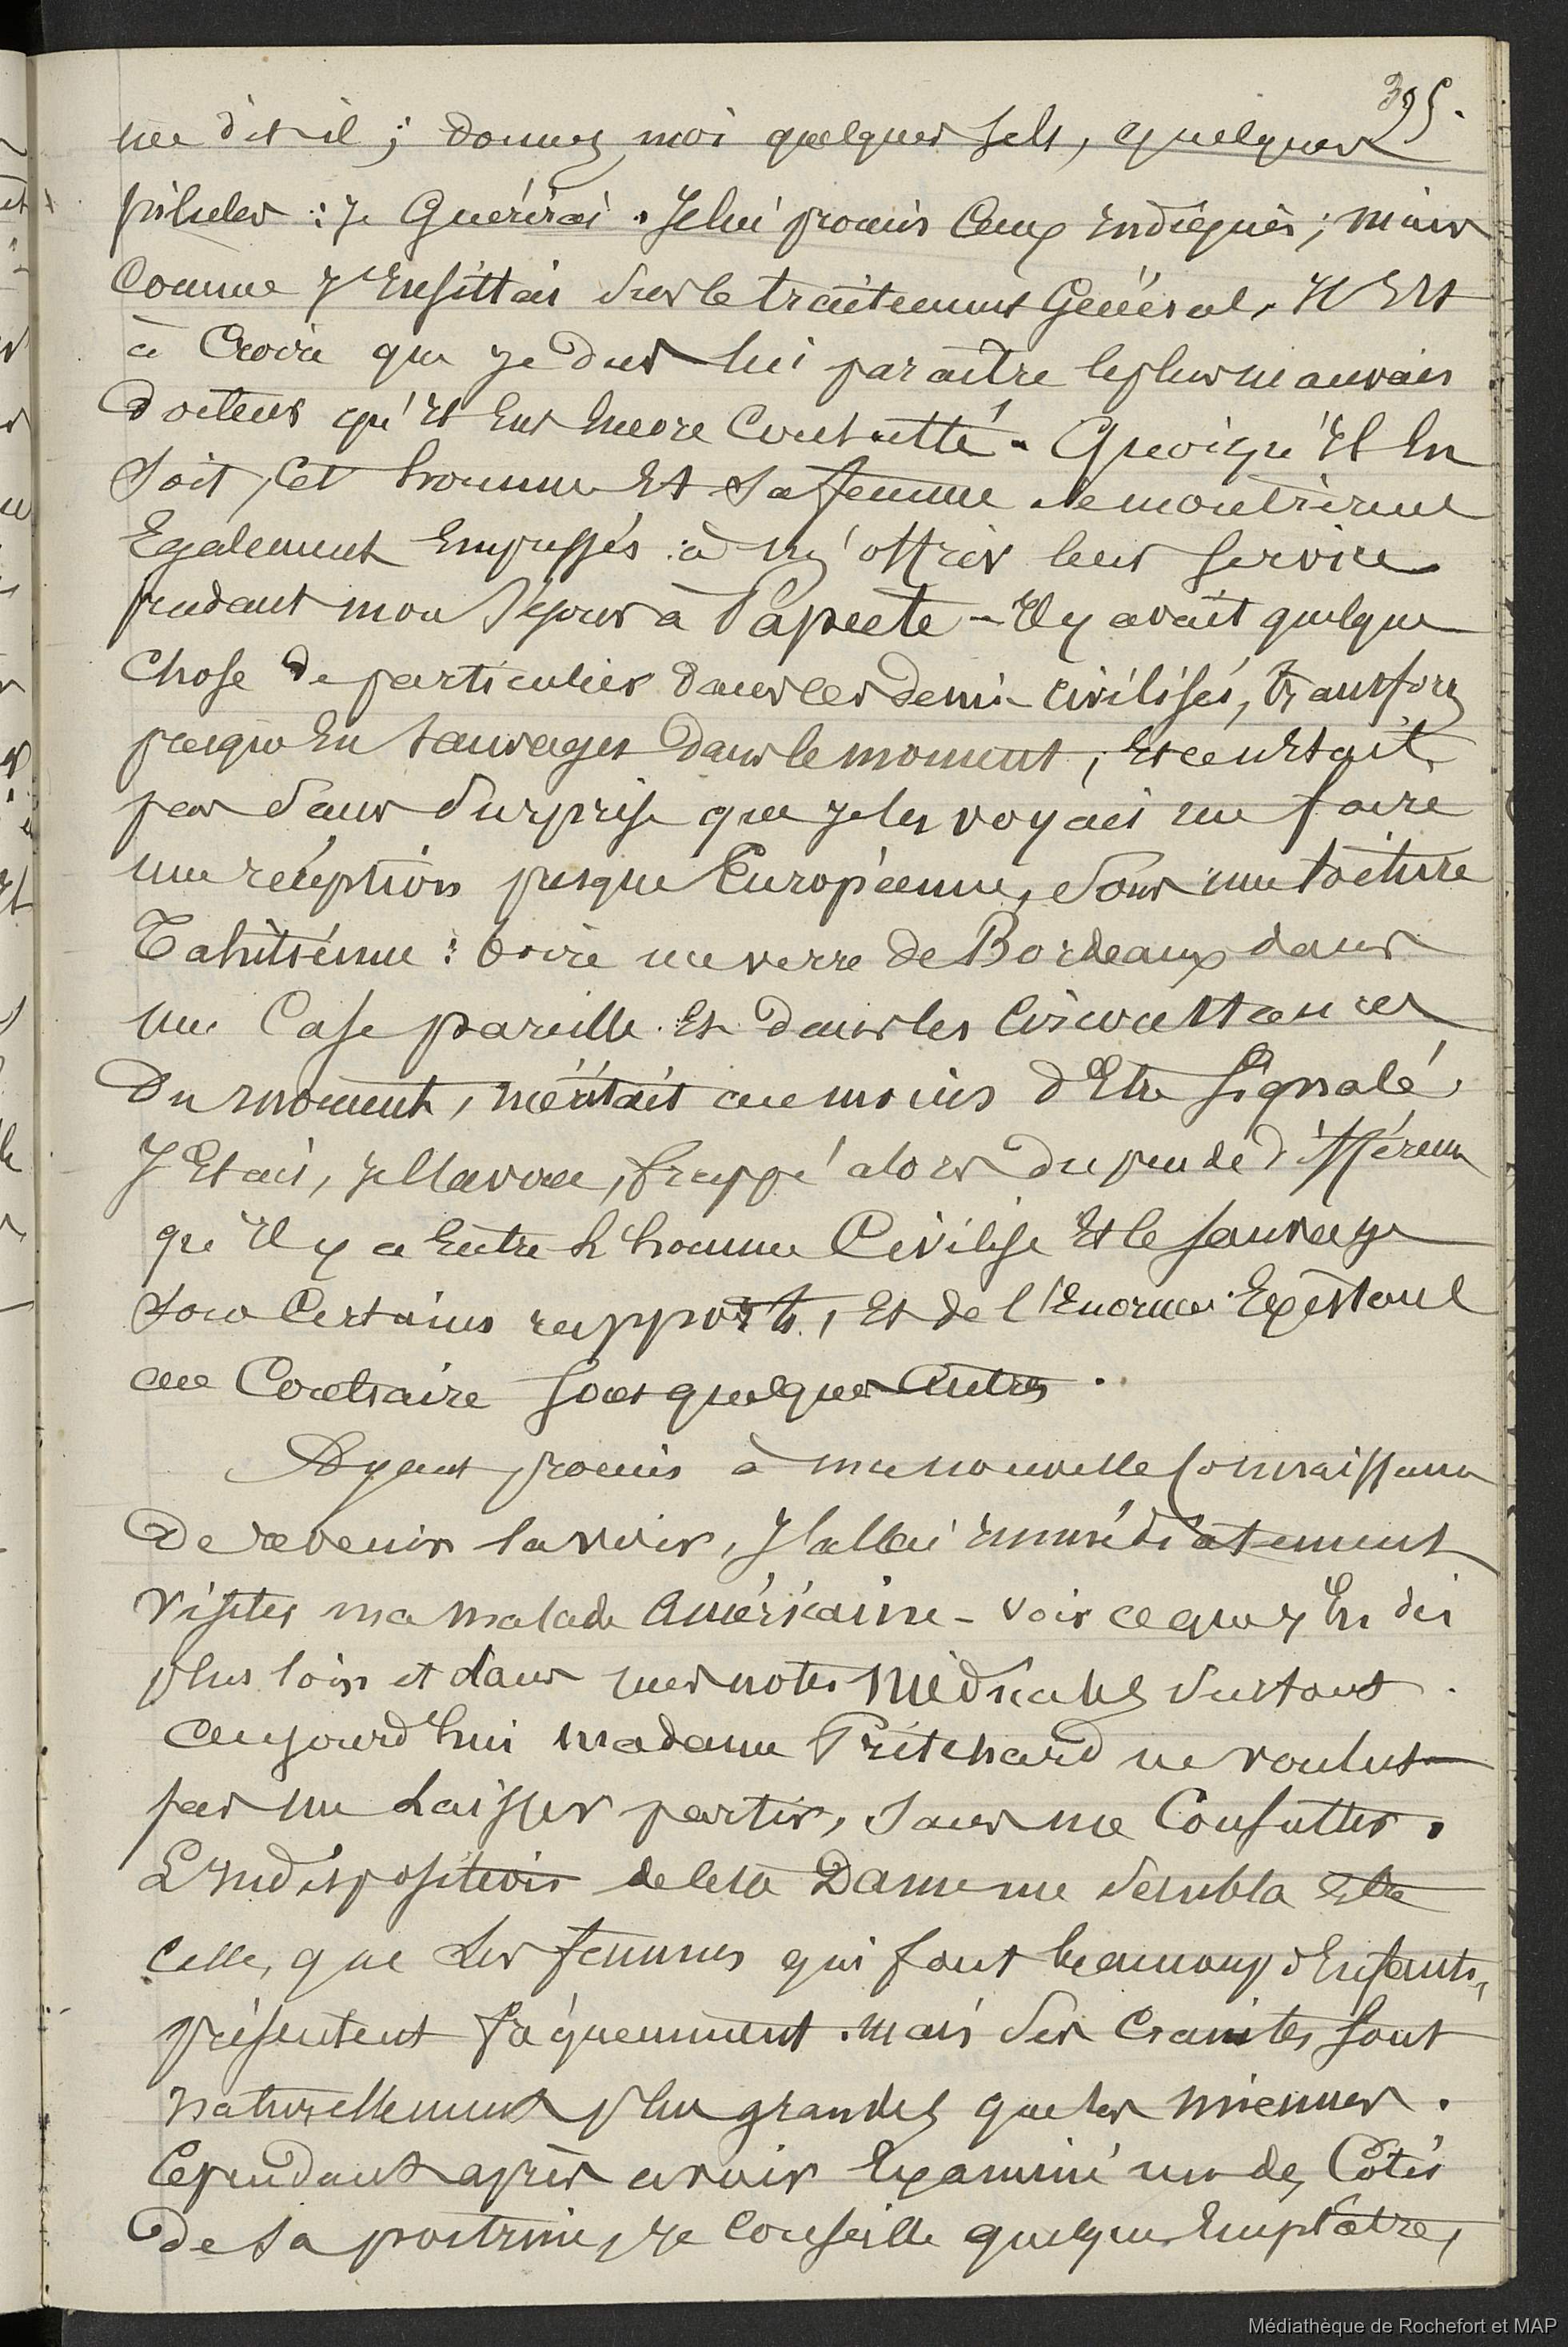 395.
me dit-il ; donnez moi quelques sels, quelques
pilules : je Guérirai. Je lui promis Ceux Indiqués ; mais
Comme J'Insistais sur le traitement Général, Il Est
à Croire que je dus lui paraître le plus mauvais
docteur qu'Il Eut Encore Consulté. Quoiqu'Il En
soit, Cet homme Et sa femme se montrèrent
Egalement Empressés à m'offrir leur service
pendant mon séjour à Papeete - Il y avait quelque
Chose de particulier dans ces demi-civilisés, transfor
presqu'En sauvages dans le moment ; Et ce n'Etait
pas sans surprise que je les voyais me faire
une réception presque Européenne, sous une toiture
Tahitienne : boire un verre de Bordeaux dans
une Case pareille Et dans les Circonstances
du moment, méritait au moins d'Etre signalé.
J'Etais, je l'avoue, frappé alors du peu de différence
qu'Il y a Entre l'homme Civilisé Et le sauvage
sous Certains rapports, Et de l'Enorme Existant
au Contraire sous quelques Autres.
Ayant promis à ma nouvelle Connaissance
de revenir la voir, J'allai Immédiatement
visiter ma malade Américaine - voir ce que J'En dis
plus loin et dans mes notes Médicales surtout.
Aujourd'hui madame Pritchard ne voulut
pas me Laisser partir, sans me Consulter.
L'Indisposition de cette Dame me sembla Etre
Celle, que Les femmes qui font beaucoup d'Enfants,
présentent fréquemment. mais ses Craintes sont
naturellement plus grandes que les miennes.
Cependant après avoir Examiné un des Côtés
de sa poitrine, je Conseille quelque Emplâtre,
Médiathèque de Rochefort et MAP